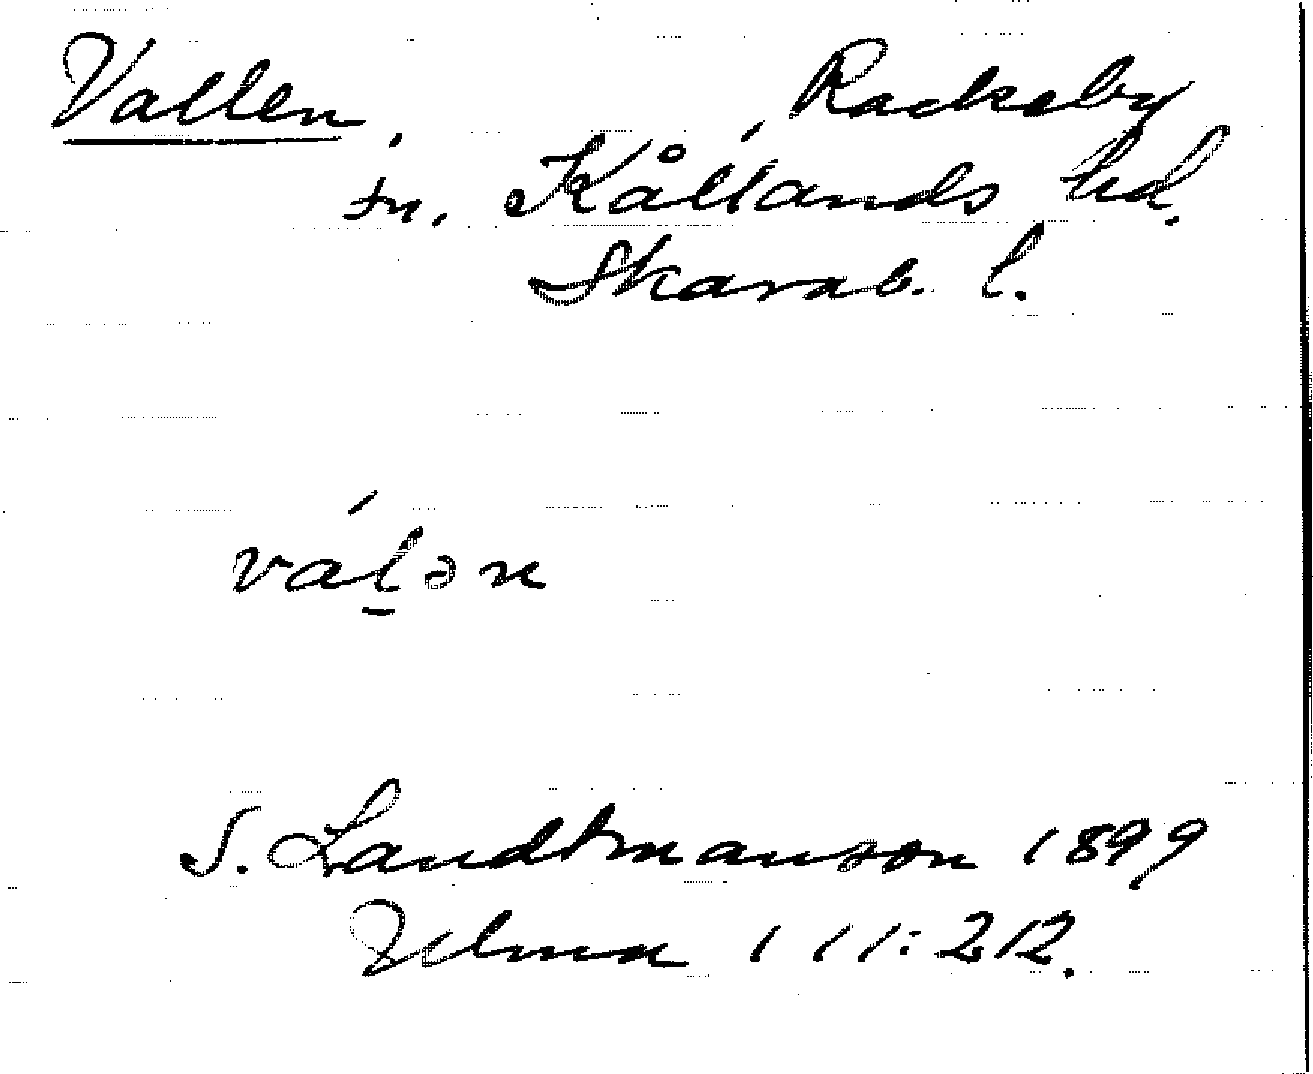 Vallen, Rackeby
sn, Kållands hd.
Skarab. l.
váḻən
S. Landtmanson 1899
Ulma 111:212.